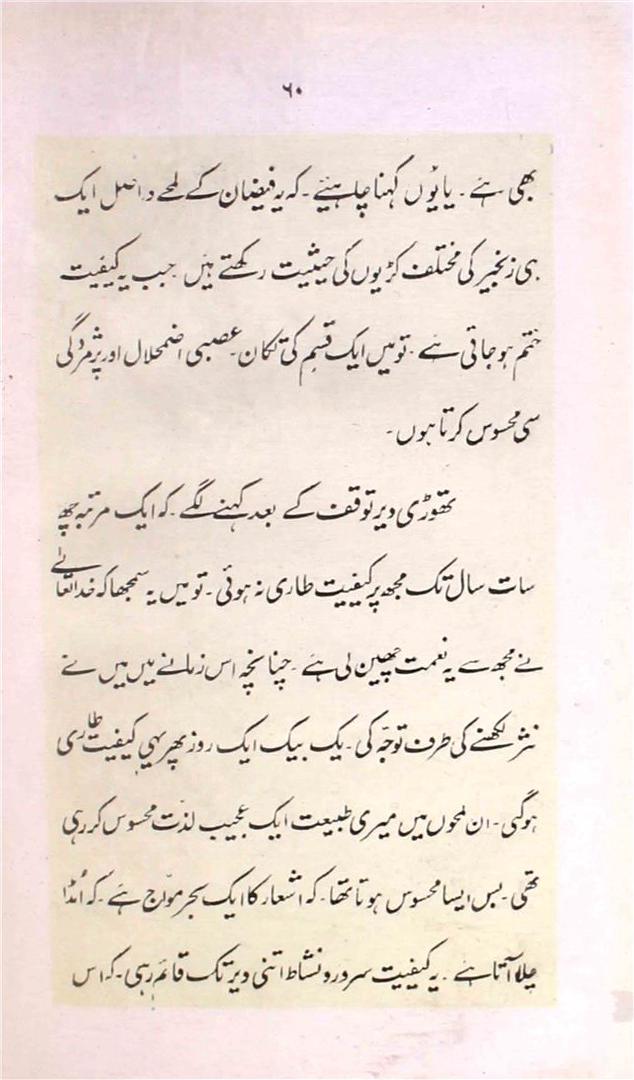 ۶۰
بھی ہے ۔ یا یُوں کہنا چاہئیے ۔ کہ یہ فیضان کے لمحے دراصل ایک
ہی زنجیر کی مختلف کڑیوں کی حیثیت رکھتے ہیں جب یہ کیفیت
ختم ہو جاتی ہے ۔ تو میں ایک قسم کی تکان ۔ عصبی اضمحلال اور پژمردگی
سی محسوس کرتا ہوں ۔
تھوڑی دیر توقف کے بعد کہنے لگے ۔ کہ ایک مرتبہ چھ
سات سال تک مجھ پر کیفیت طاری نہ ہوئی ۔ تو میں یہ سمجھا کہ خدا تعالٰے
نے مجھ سے یہ نعمت چھین لی ہے ۔ چنانچہ اس زمانے میں میں نے
نثر لکھنے کی طرف توجّہ کی ۔ یک بیک ایک روز پھر یہی کیفیت طاری
ہوگئی ۔ ان لمحوں میں میری طبیعت ایک عجیب لذت محسوس کر رہی
تھی ۔ بس ایسا محسوس ہوتا تھا ۔ کہ اشعار کا ایک بحر موّاج ہے ۔ کہ اُمڈا
چلا آتا ہے ۔ یہ کیفیت سرور و نشاط اتنی دیر تک قائم رہی ۔ کہ اس